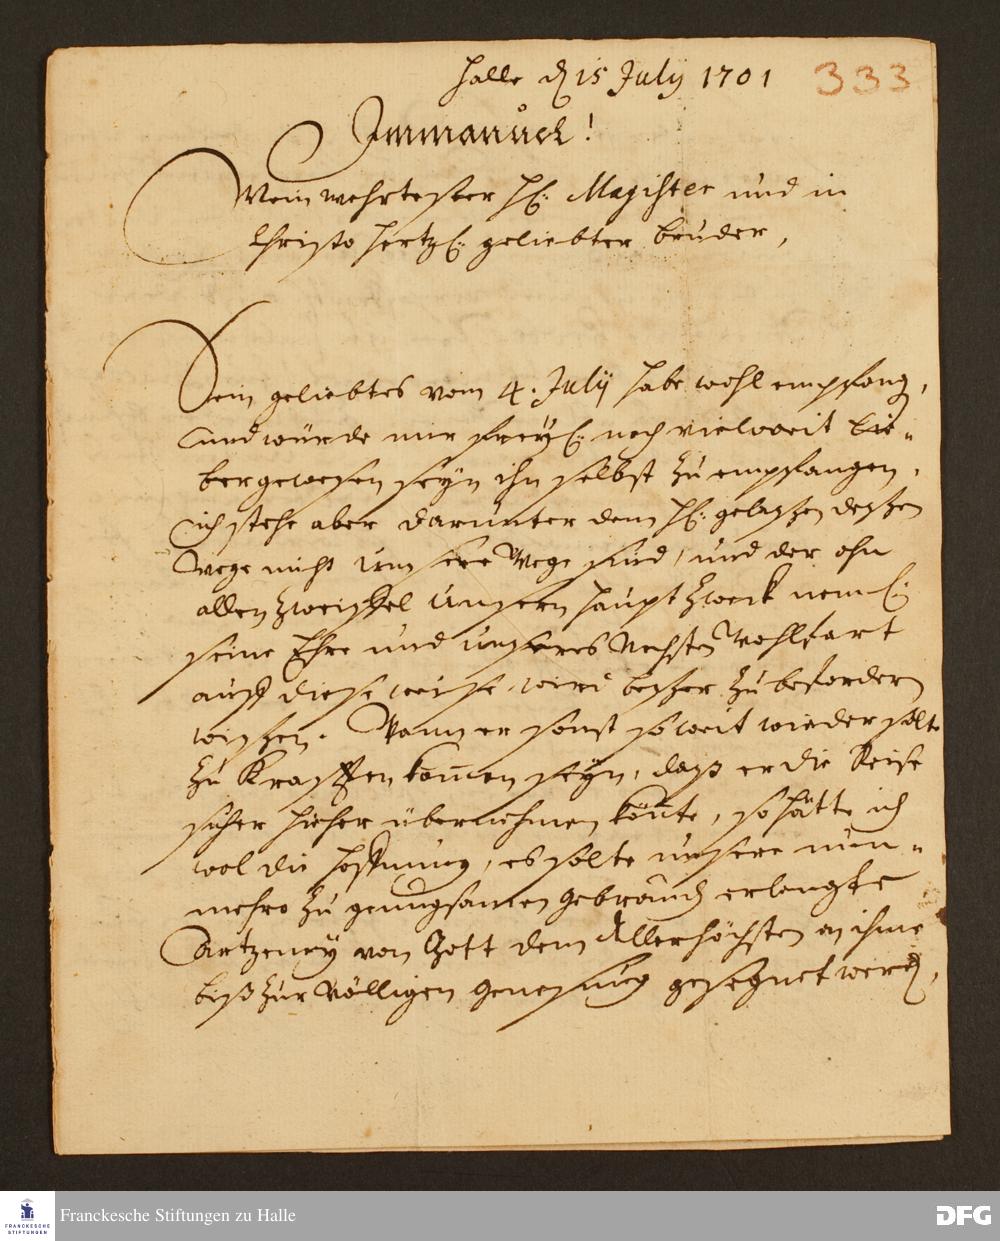 Halle d 15 July 1701
333
Immanuel!
Mein wehrtester H: Magister und in
Christo hertzl: geliebter bruder,
Sein geliebtes vom 4. July habe wohl empfang,
und würde mir freyl: noch vielweit lie-
ber gewesen seyn ihn selbst zu empfangen.
ich stehe aber darunter dem H: gelaßen deßen
Wege nicht unsere Wege sind, und der ohn
allen Zweiffel unsern Haupt Zweck neml:
seine Ehre und unseres Nechsten Wohlfart
auff diese weise wird beßer zu befordern
wißen. Wann er sonst so weit wieder solte
zu Krafften kom̄en seyn, daß er die Reise
sicher hieher übernehmen kön̄te, so hätte ich
wol die Hoffnung, es solte unsere nun-
mehro zu genugsamen Gebrauch erlangte
Artzeney von Gott dem Allerhöchsten an ihme
biß zur völligen Genesung gesegnet werd,
FRANCKESCHE
STIFTUNGEN
Franckesche Stiftungen zu Halle
DFG